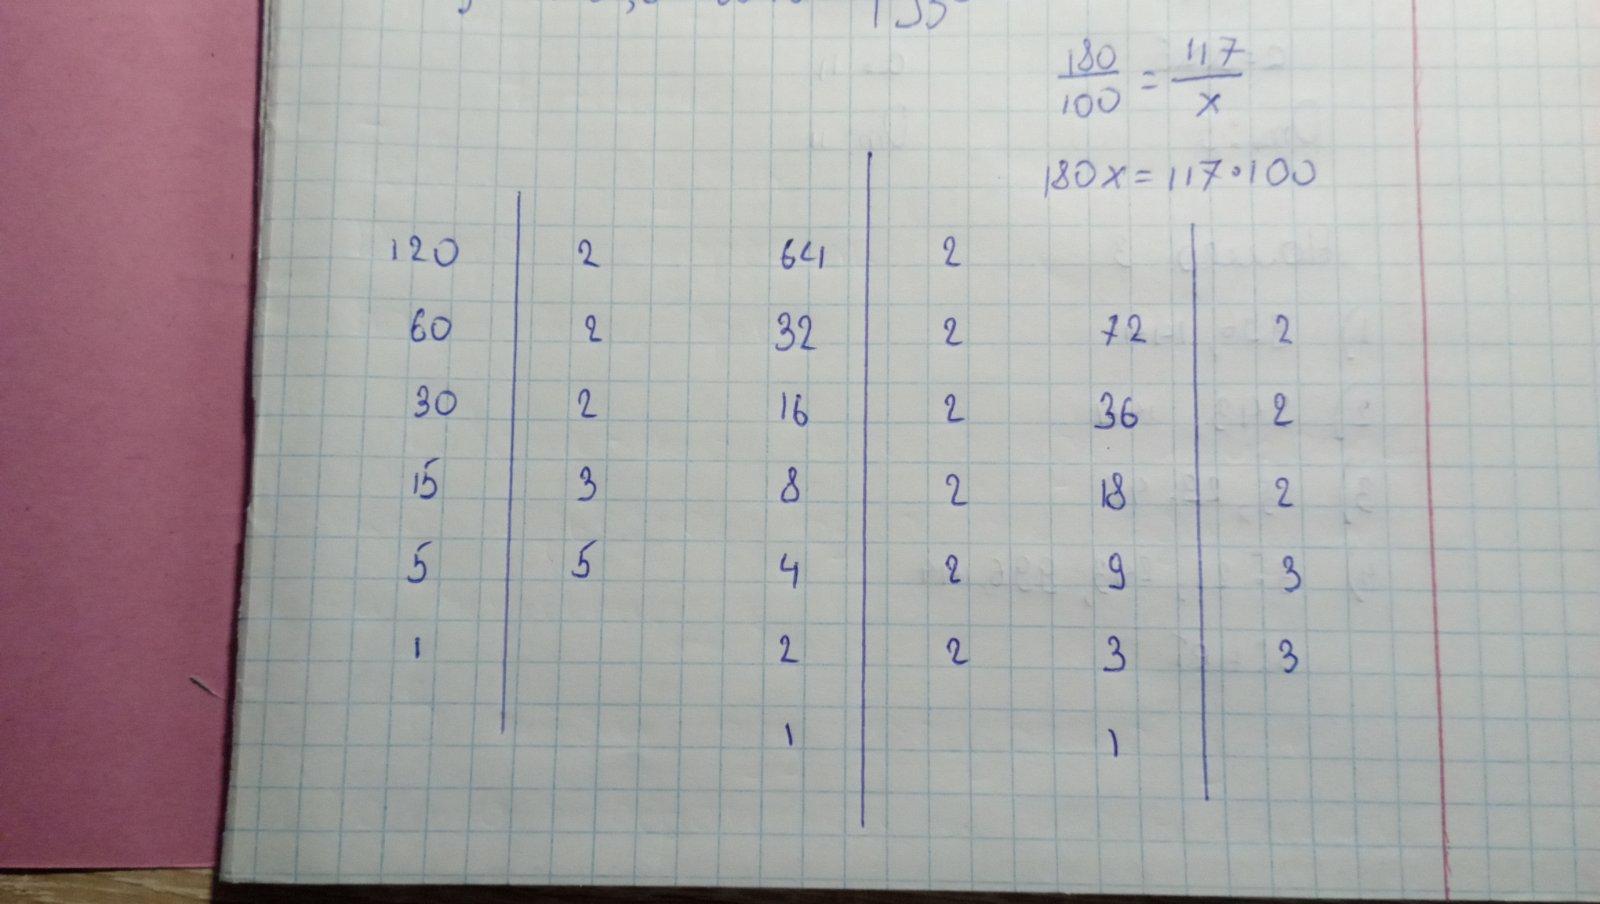 180/100 = 117/x
180x = 117·100
120 | 2
60 | 2
30 | 2
15 | 3
5 | 5
1 |
64 | 2
32 | 2
16 | 2
8 | 2
4 | 2
2 | 2
1 |
72 | 2
36 | 2
18 | 2
9 | 3
3 | 3
1 |